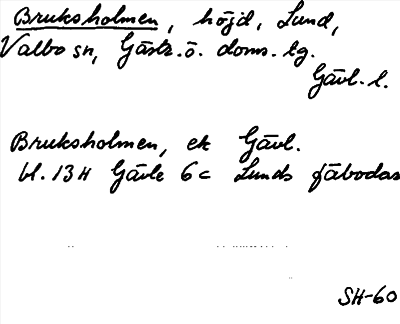 Bruksholmen, höjd, Lund,
Valbo sn, Gästr. ö. doms. tg.
Gävl. l.
Bruksholmen, ek Gävl.
bl. 13H Gävle 6c Lunds fäbodas
SH-60